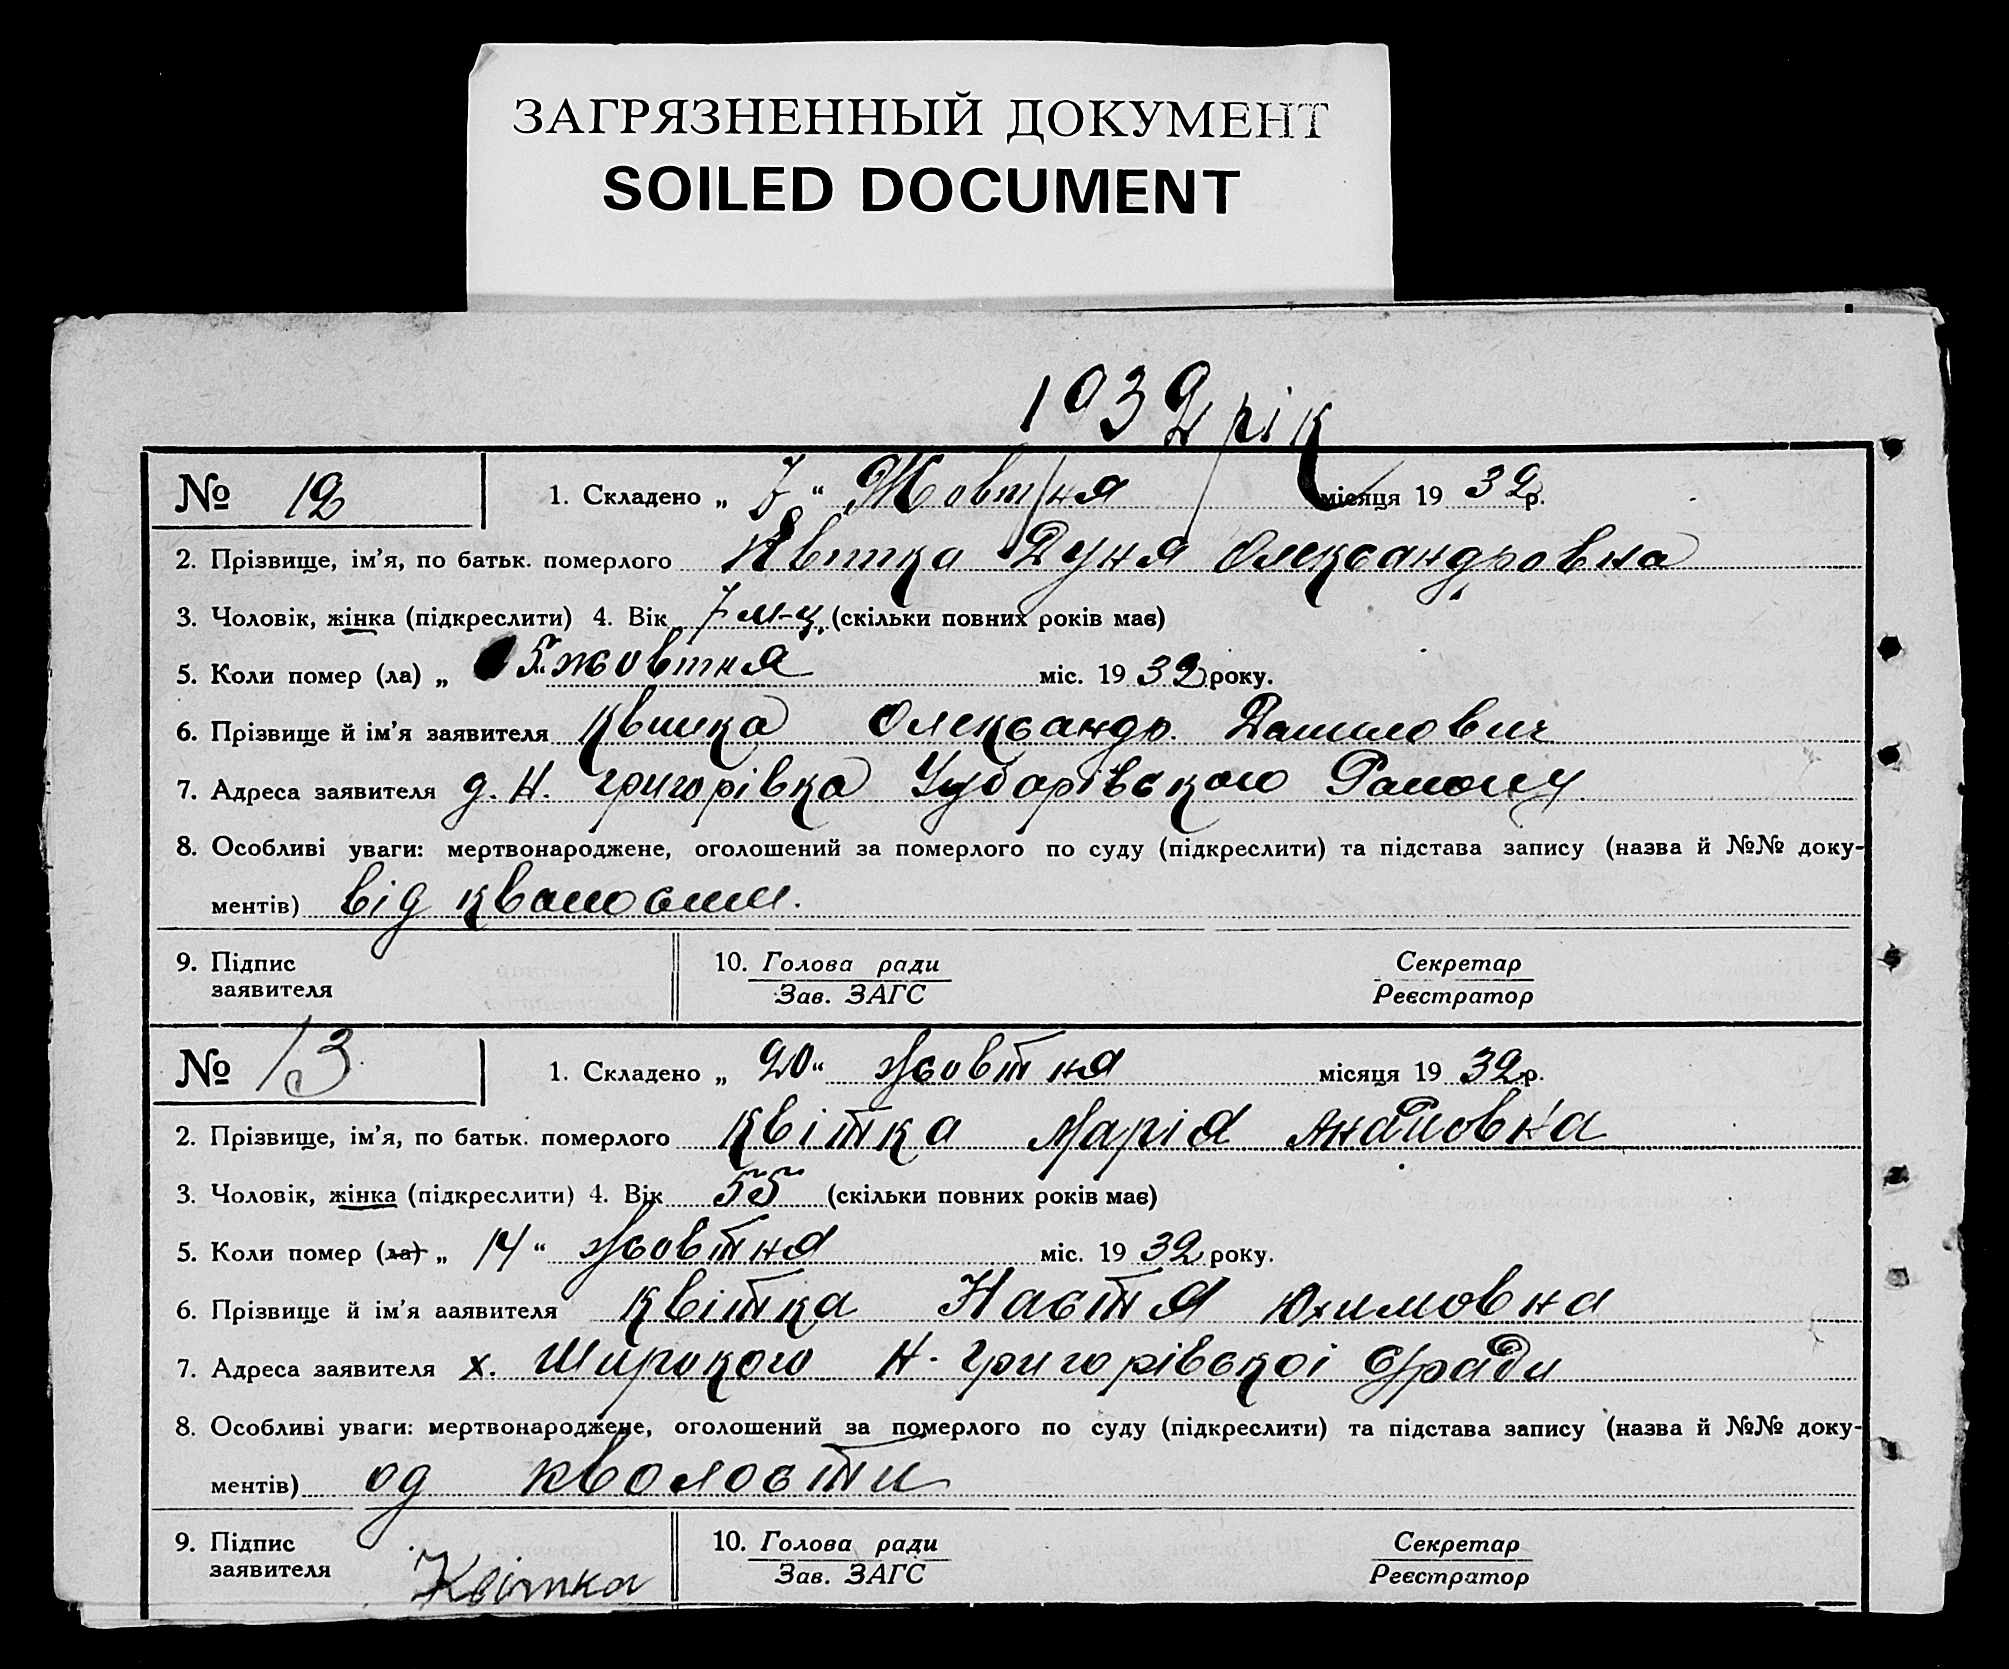 ЗАГРЯЗНЕННЫЙ ДОКУМЕНТ
SOILED DOCUMENT
1932 рік
№ 12 1. Складено „ 7 “ Жовтня місяця 19 32 р.
2. Прізвище, ім'я, по батьк. померлого Квітка Дуня Олександровна
3. Чоловік, жінка (підкреслити) 4. Вік 7 м-ц. (скільки повних років має)
5. Коли помер (ла) „ 5 “ жовтня міс. 19 32 року.
6. Прізвище й ім'я заявителя Квітка Олександр. Данилович
7. Адреса заявителя д. Н. Григорівка Чубарівського Району
8. Особливі уваги: мертвонароджене, оголошений за померлого по суду (підкреслити) та підстава запису (назва й №№ доку-
ментів) від кволости.
9. Підпис заявителя 10. Голова ради Секретар
Зав. ЗАГС Реєстратор
№ 13 1. Складено „ 20 “ Жовтня місяця 19 32 р.
2. Прізвище, ім'я, по батьк. померлого Квітка Марія
3. Чоловік, жінка (підкреслити) 4. Вік 55 (скільки повних років має)
5. Коли помер (ла) „ 14 “ Жовтня міс. 19 32 року.
6. Прізвище й ім'я ааявителя Квітка Настя Юхимовна
7. Адреса заявителя х. Широкого Н. Григорівскоі С/ради
8. Особливі уваги: мертвонароджене, оголошений за померлого по суду (підкреслити) та підстава запису (назва й №№ доку-
ментів) од кволости
9. Підпис заявителя Квітка 10. Голова ради Секретар
Зав. ЗАГС Реєстратор